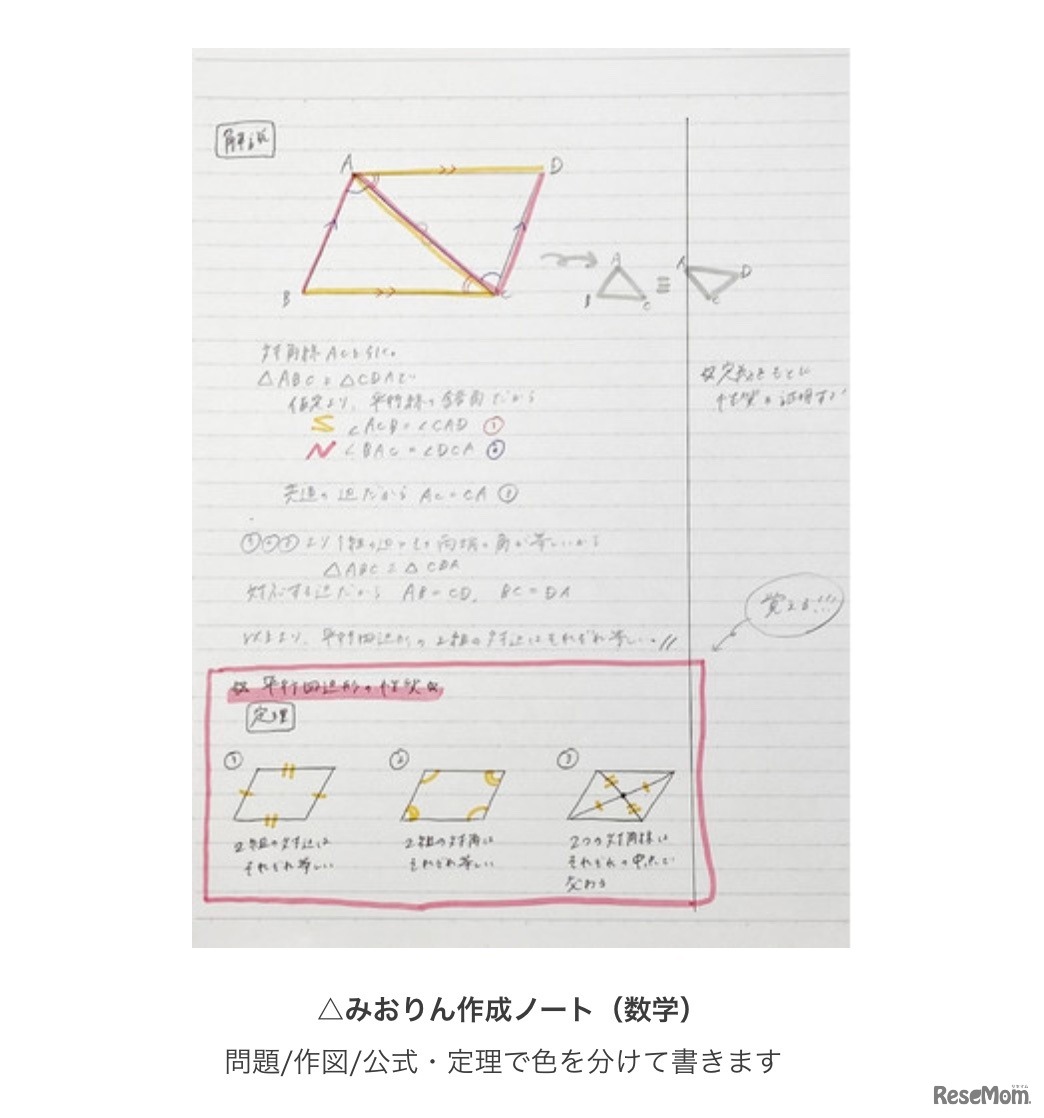 解説
A
D
B
C
A
B
C
≡
A
D
C
対角線ACを引く。
△ABCと△CDAで
仮定より、平行線の錯角だから
∠ACB=∠CAD ①
∠BAC=∠DCA ②
☆定義をもとに
性質を証明する!
共通の辺だから AC=CA ③
①②③より1組の辺とその両端の角が等しいから
△ABC≡△CDA
対応する辺だから AB=CD, BC=DA
覚える!!!
以上より、平行四辺形の2組の対辺はそれぞれ等しい。//
☆平行四辺形の性質☆
定理
①
②
③
2組の対辺は
それぞれ等しい
2組の対角は
それぞれ等しい
2つの対角線は
それぞれの中点で
交わる
△みおりん作成ノート（数学）
問題/作図/公式・定理で色を分けて書きます
リセマム
ReseMom.